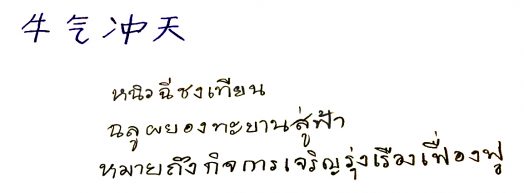 牛气冲天
หนิวฉี่ชงเทียน
ฉลูผยองทะยานสู่ฟ้า
หมายถึงกิจการเจริญรุ่งเรืองเฟื่องฟู